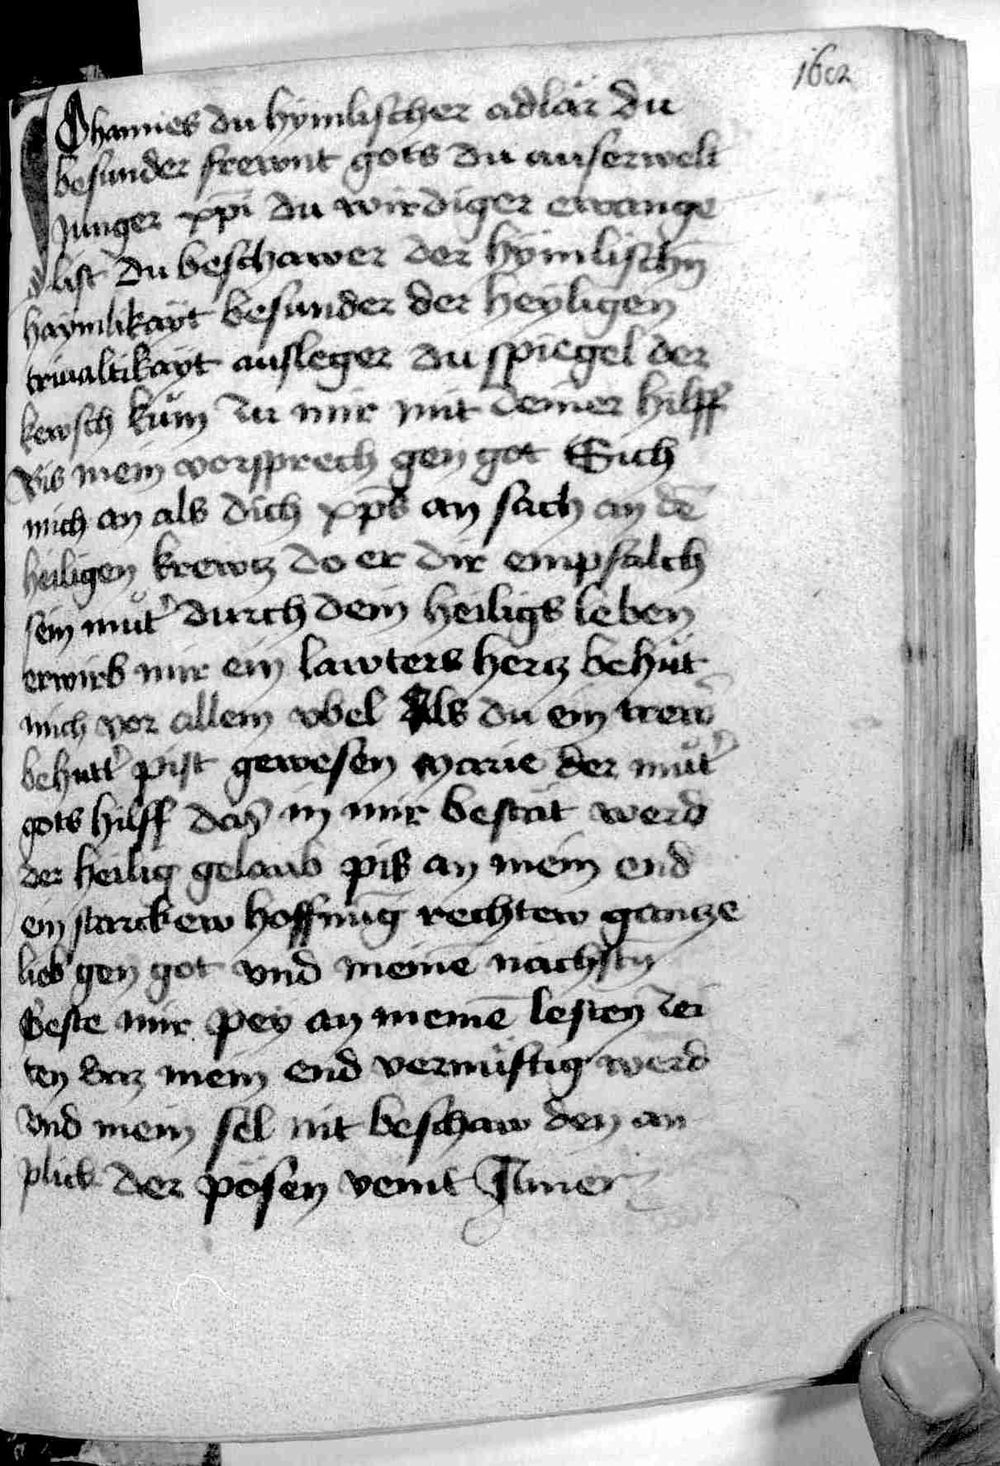 162
Johannes du hymlischer adlar du
besunder frewnt gots du auserwelt
Junger xp̄i du wirdiger ewange
list du beschawer der hymlischn̄
haymlikayt besunder der heyligen
triualtikayt ausleger du spiegel der
kewsch kům zu mir mit deiner hilff
Bis mein vorsprech gen got Sich
mich an als dich xp̄s an sach an dē
heiligen krewtz do er dir empfalch
sein můt' durch dein heiligs leben
erwirb mir ein lawters hertz behüt
mich vor allem vbel Als du ein trew'
behutt' pist gewesen Marie der můt'
gots hilff das in mir bestät werd
der heilig gelaub pis an mein end
ein starckew hoffnūg rechtew gantze
lieb gen got vnd meinē nächstn̄
Geste mir pey an meinē lesten zei
ten daz mein end vernüftig werd
vnd mein sel nit beschaw den an
plick der pösen veint Amen